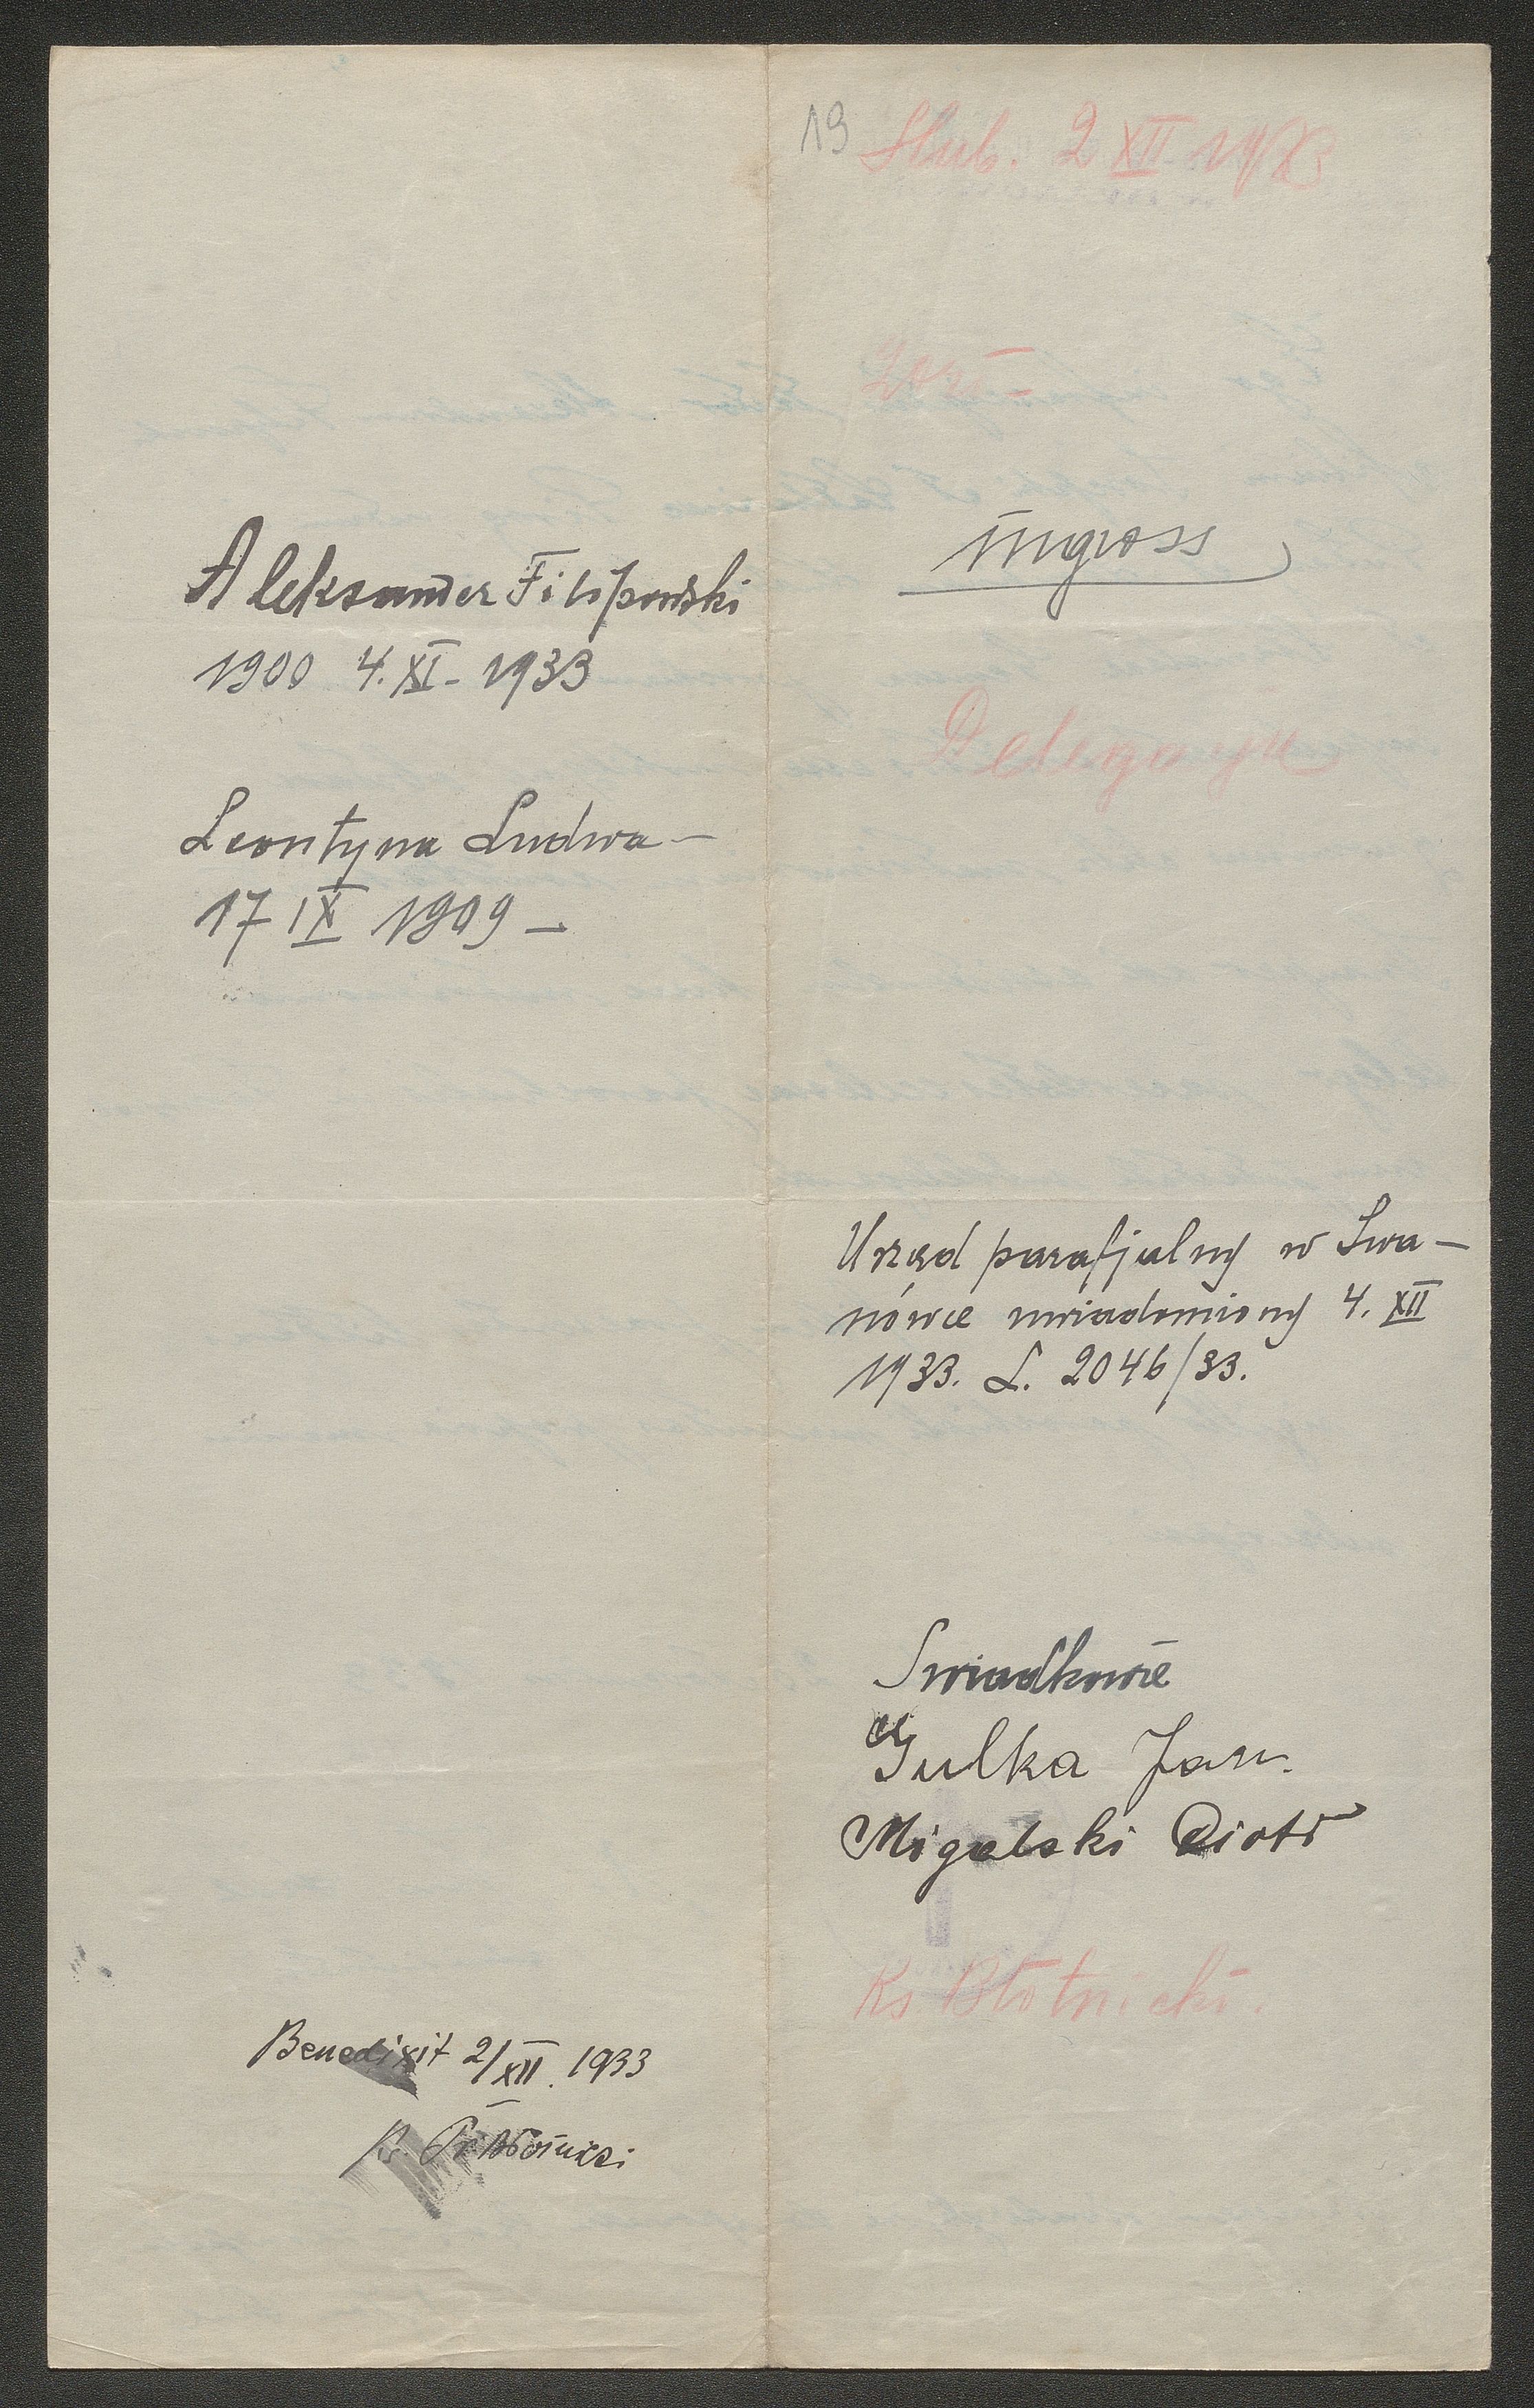 Aleksander Filipowski
1900 4. XI - 1933
Leontyna Ludwa -
17 IX 1909 -
Benedixit 2/XII. 1933
Ks.
19 Ślub. 2 XII 1933
ingross
Delegacya
Urząd parafjalny w Iwa-
nówce uwiadomiony 4. XII
1933. L. 2046/33.
Swiadkowie
Gulka Jan.
Migalski Piotr
Ks. Błotnicki.